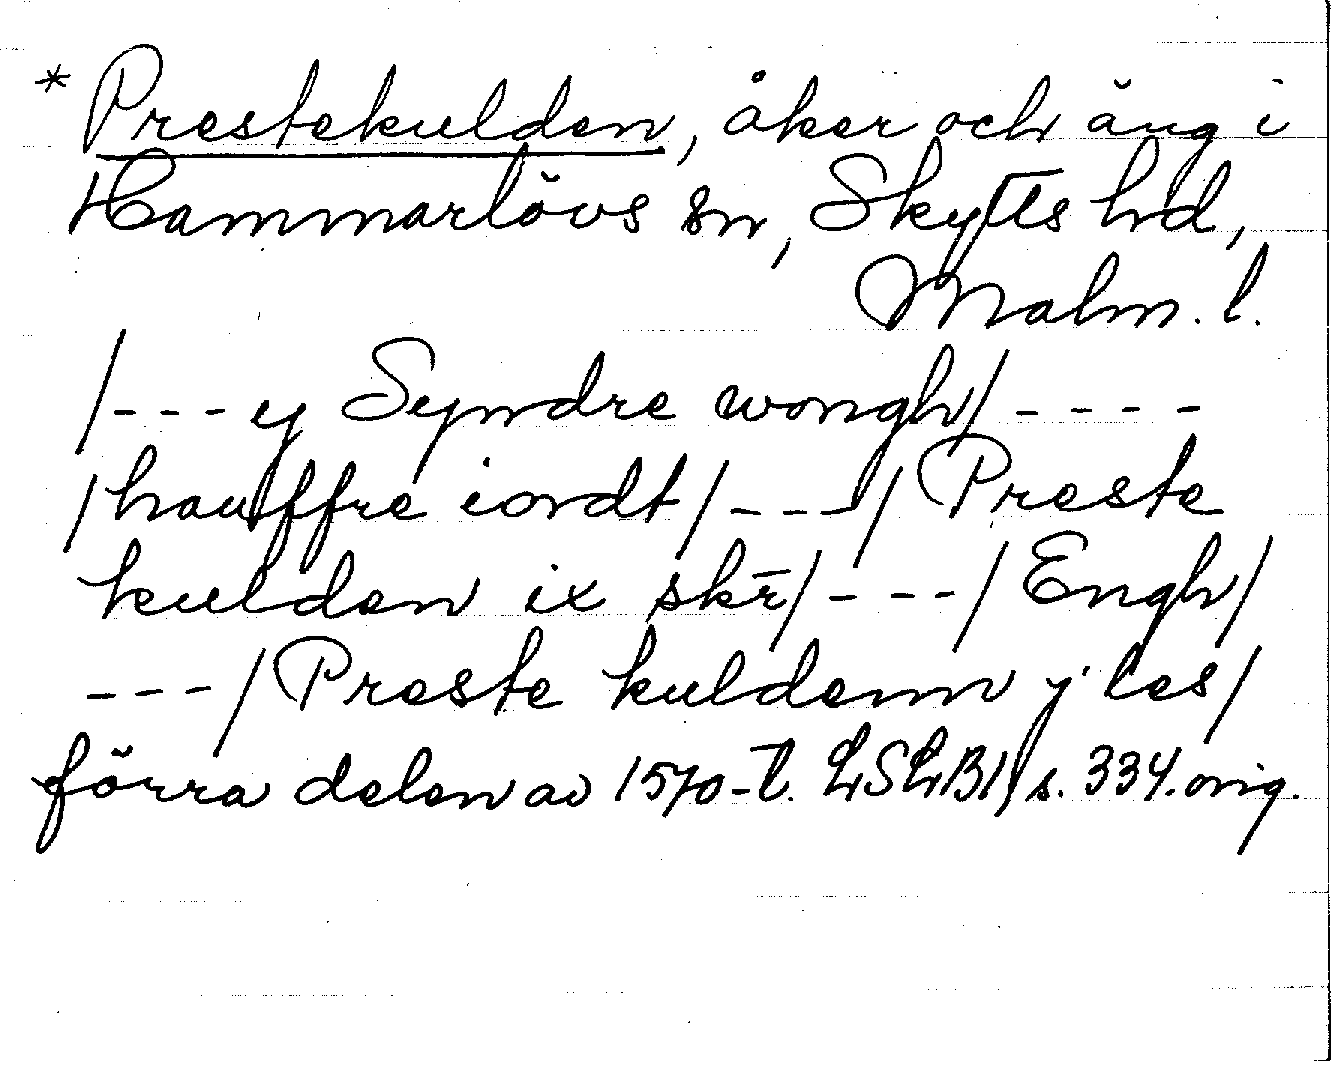 * Prestekulden, åker och äng i
Hammarlövs sn, Skytts hd,
Malm. l.
/---y Syndre wongh/----
/hauffre iordt/---/Preste
kulden ix skr̄/---/Engh/
---/Preste kuldenn y les/
förra delen av 1570-t. LSLB1, s. 334. orig.